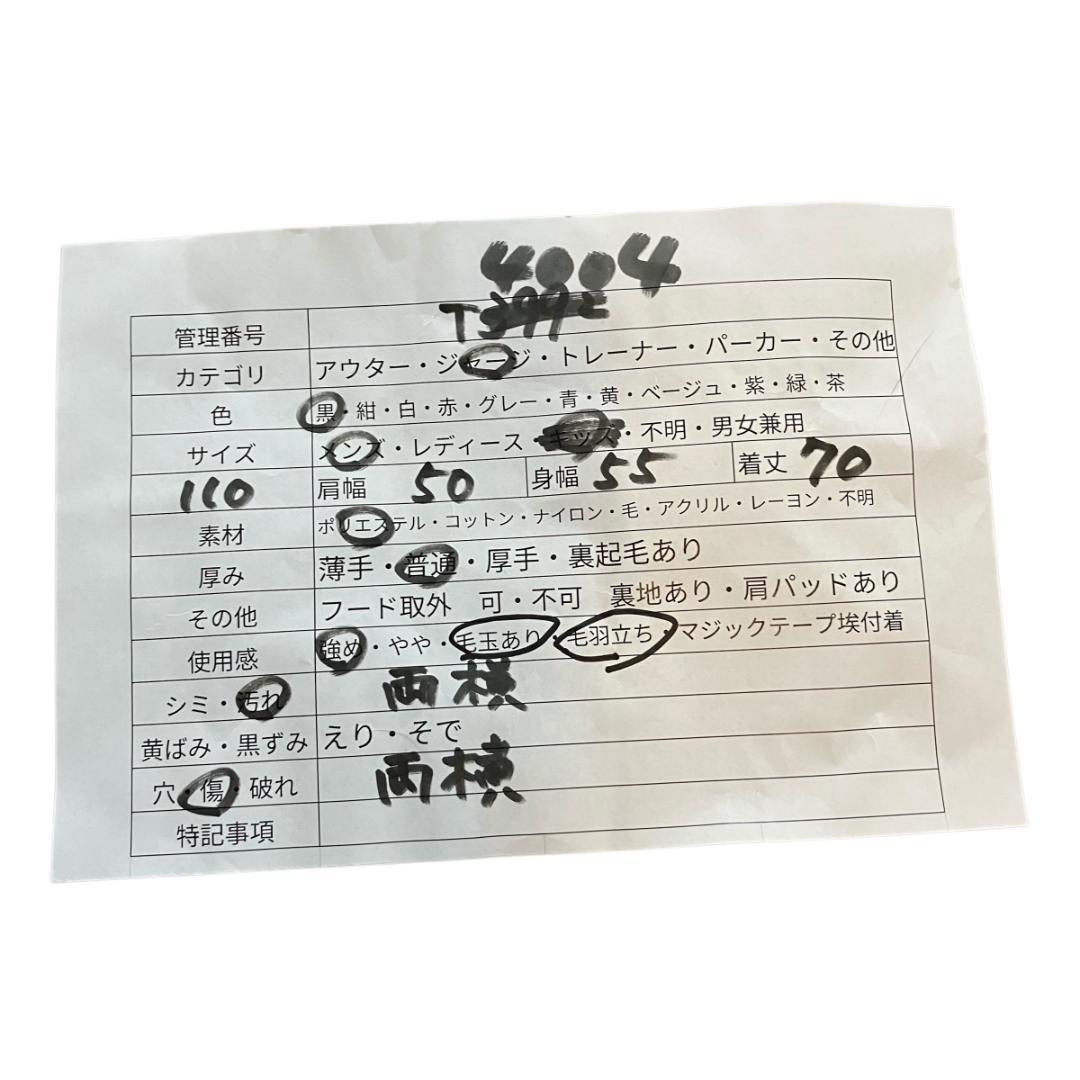 4004
管理番号 T3992
カテゴリ アウター・ジャージ・トレーナー・パーカー・その他
色 黒・紺・白・赤・グレー・青・黄・ベージュ・紫・緑・茶
サイズ メンズ・レディース・キッズ・不明・男女兼用
110 肩幅 50 身幅 55 着丈 70
素材 ポリエステル・コットン・ナイロン・毛・アクリル・レーヨン・不明
厚み 薄手・普通・厚手・裏起毛あり
その他 フード取外 可・不可 裏地あり・肩パッドあり
使用感 強め・やや・毛玉あり・毛羽立ち・マジックテープ埃付着
シミ・汚れ 両横
黄ばみ・黒ずみ えり・そで
穴・傷・破れ 両横
特記事項